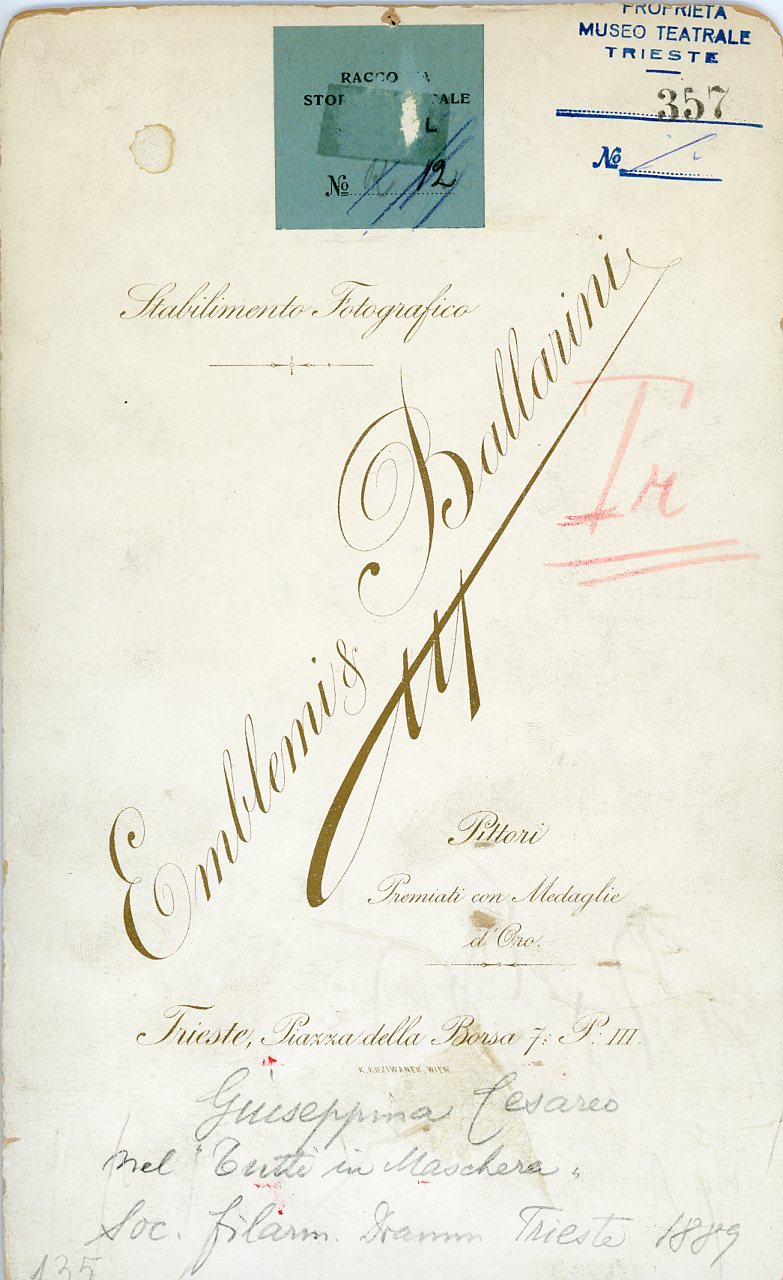 PROPRIETA
MUSEO TEATRALE
TRIESTE
357
No
RACCO
STOR ALE
L
No 12
Stabilimento Fotografico
Emblemi & Ballarini
Tr
Pittori
Premiati con Medaglie
d'Oro.
Trieste, Piazza della Borsa 7: P: III.
K.KRZIWANEK, WIEN
Giuseppina Cesareo
nel "Tutti in Maschera"
Soc. filarm. Dramm Trieste 1889
135